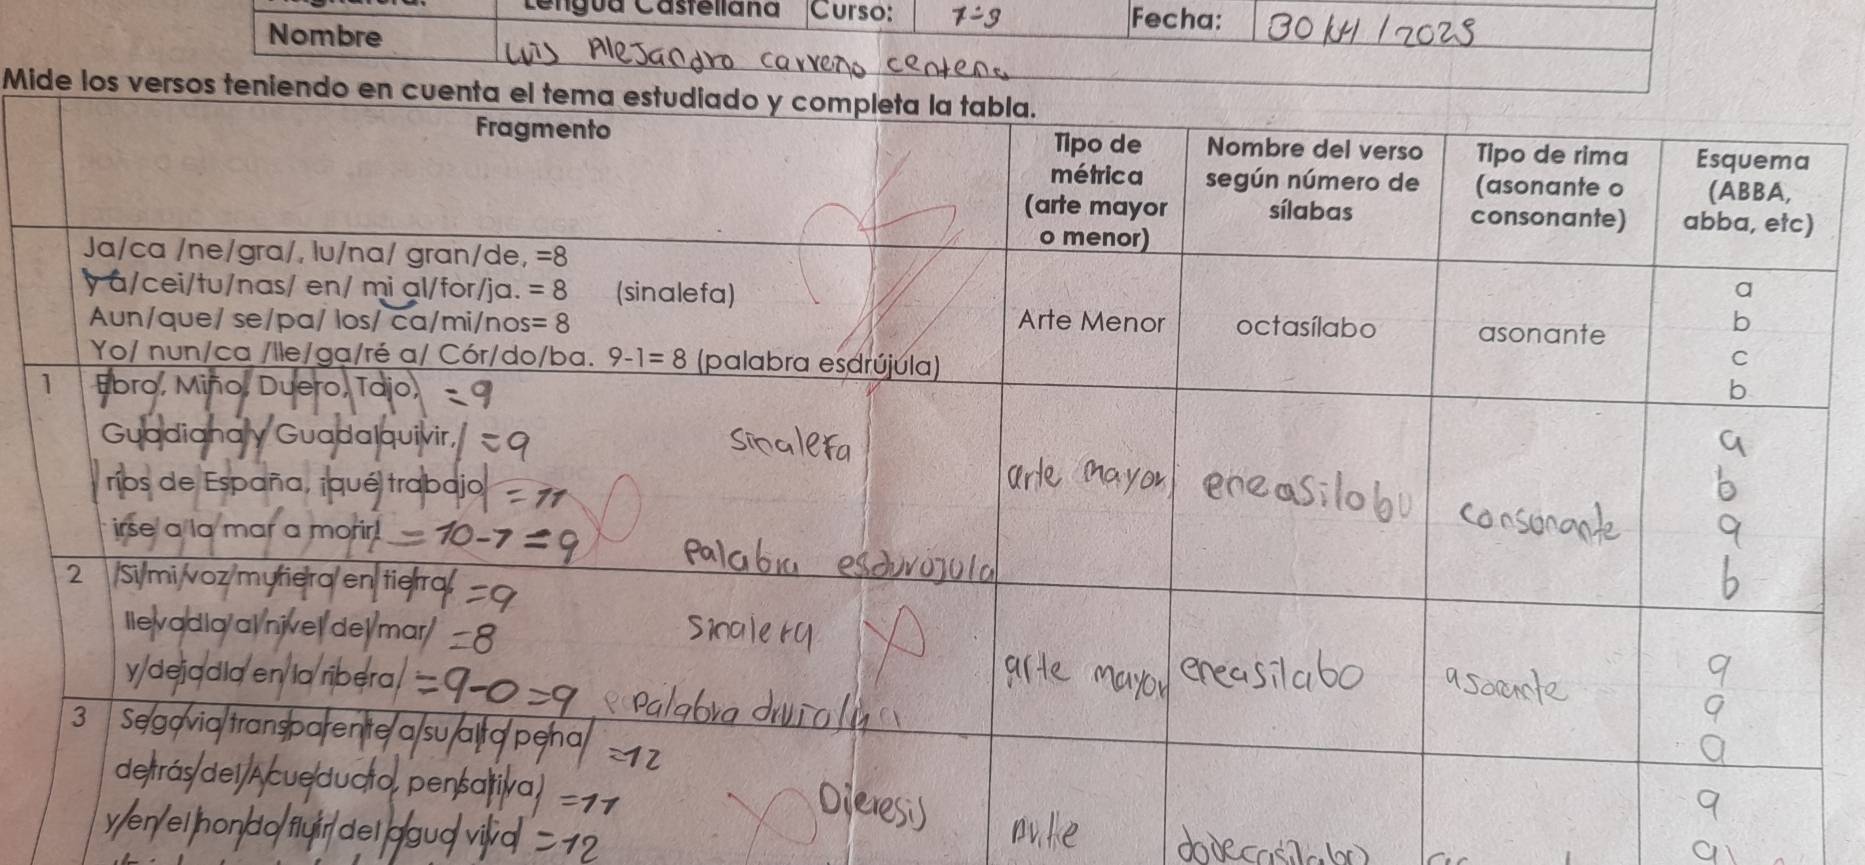 Lengua Castellana Curso: 7-9 Fecha: 30/
Nombre Luis Alejandro carreño centeno
Mide los versos teniendo en cuenta el tema estudiado y completa la tabla.
Fragmento
Tipo de métrica (arte mayor o menor)
Nombre del verso según número de sílabas
Tipo de rima (asonante o consonante)
Esquema (ABBA, abba, etc)
Ja/ca /ne/gra/, lu/na/ gran/de, =8
y a/cei/tu/nas/ en/ mi al/for/ja. = 8 (sinalefa)
Aun/que/ se/pa/ los/ ca/mi/nos= 8
Yo/ nun/ca /lle/ga/ré a/ Cór/do/ba. 9-1= 8 (palabra esdrújula)
Arte Menor
octasílabo
asonante
a
b
c
b
1 Ebro, Miño, Duero, Tajo, =9
Guadiana y Guadalquivir, =9 sinalefa
ríos de España, ¡qué trabajo =11
irse a la mar a morir! =10-1=9 palabra esdurojula
arte mayor
eneasilabo
consonante
a
b
a
b
2 Si/mi/voz/muriera/en/tierra/ =9
llevadla/al/nivel/del/mar/ =8 sinalera
y/dejadla/en/la/ribera/ =9-0=9 palabra
arte mayor
eneasilabo
asonante
a
a
a
3 Segovia/transparente/a/su/alta/peña/ =12
detrás/del/Acueducto, pensativa/ =11 Dieresis
y/en/el/hondo/fluir/del/agua/viva =12
dodecasilabo
a
a